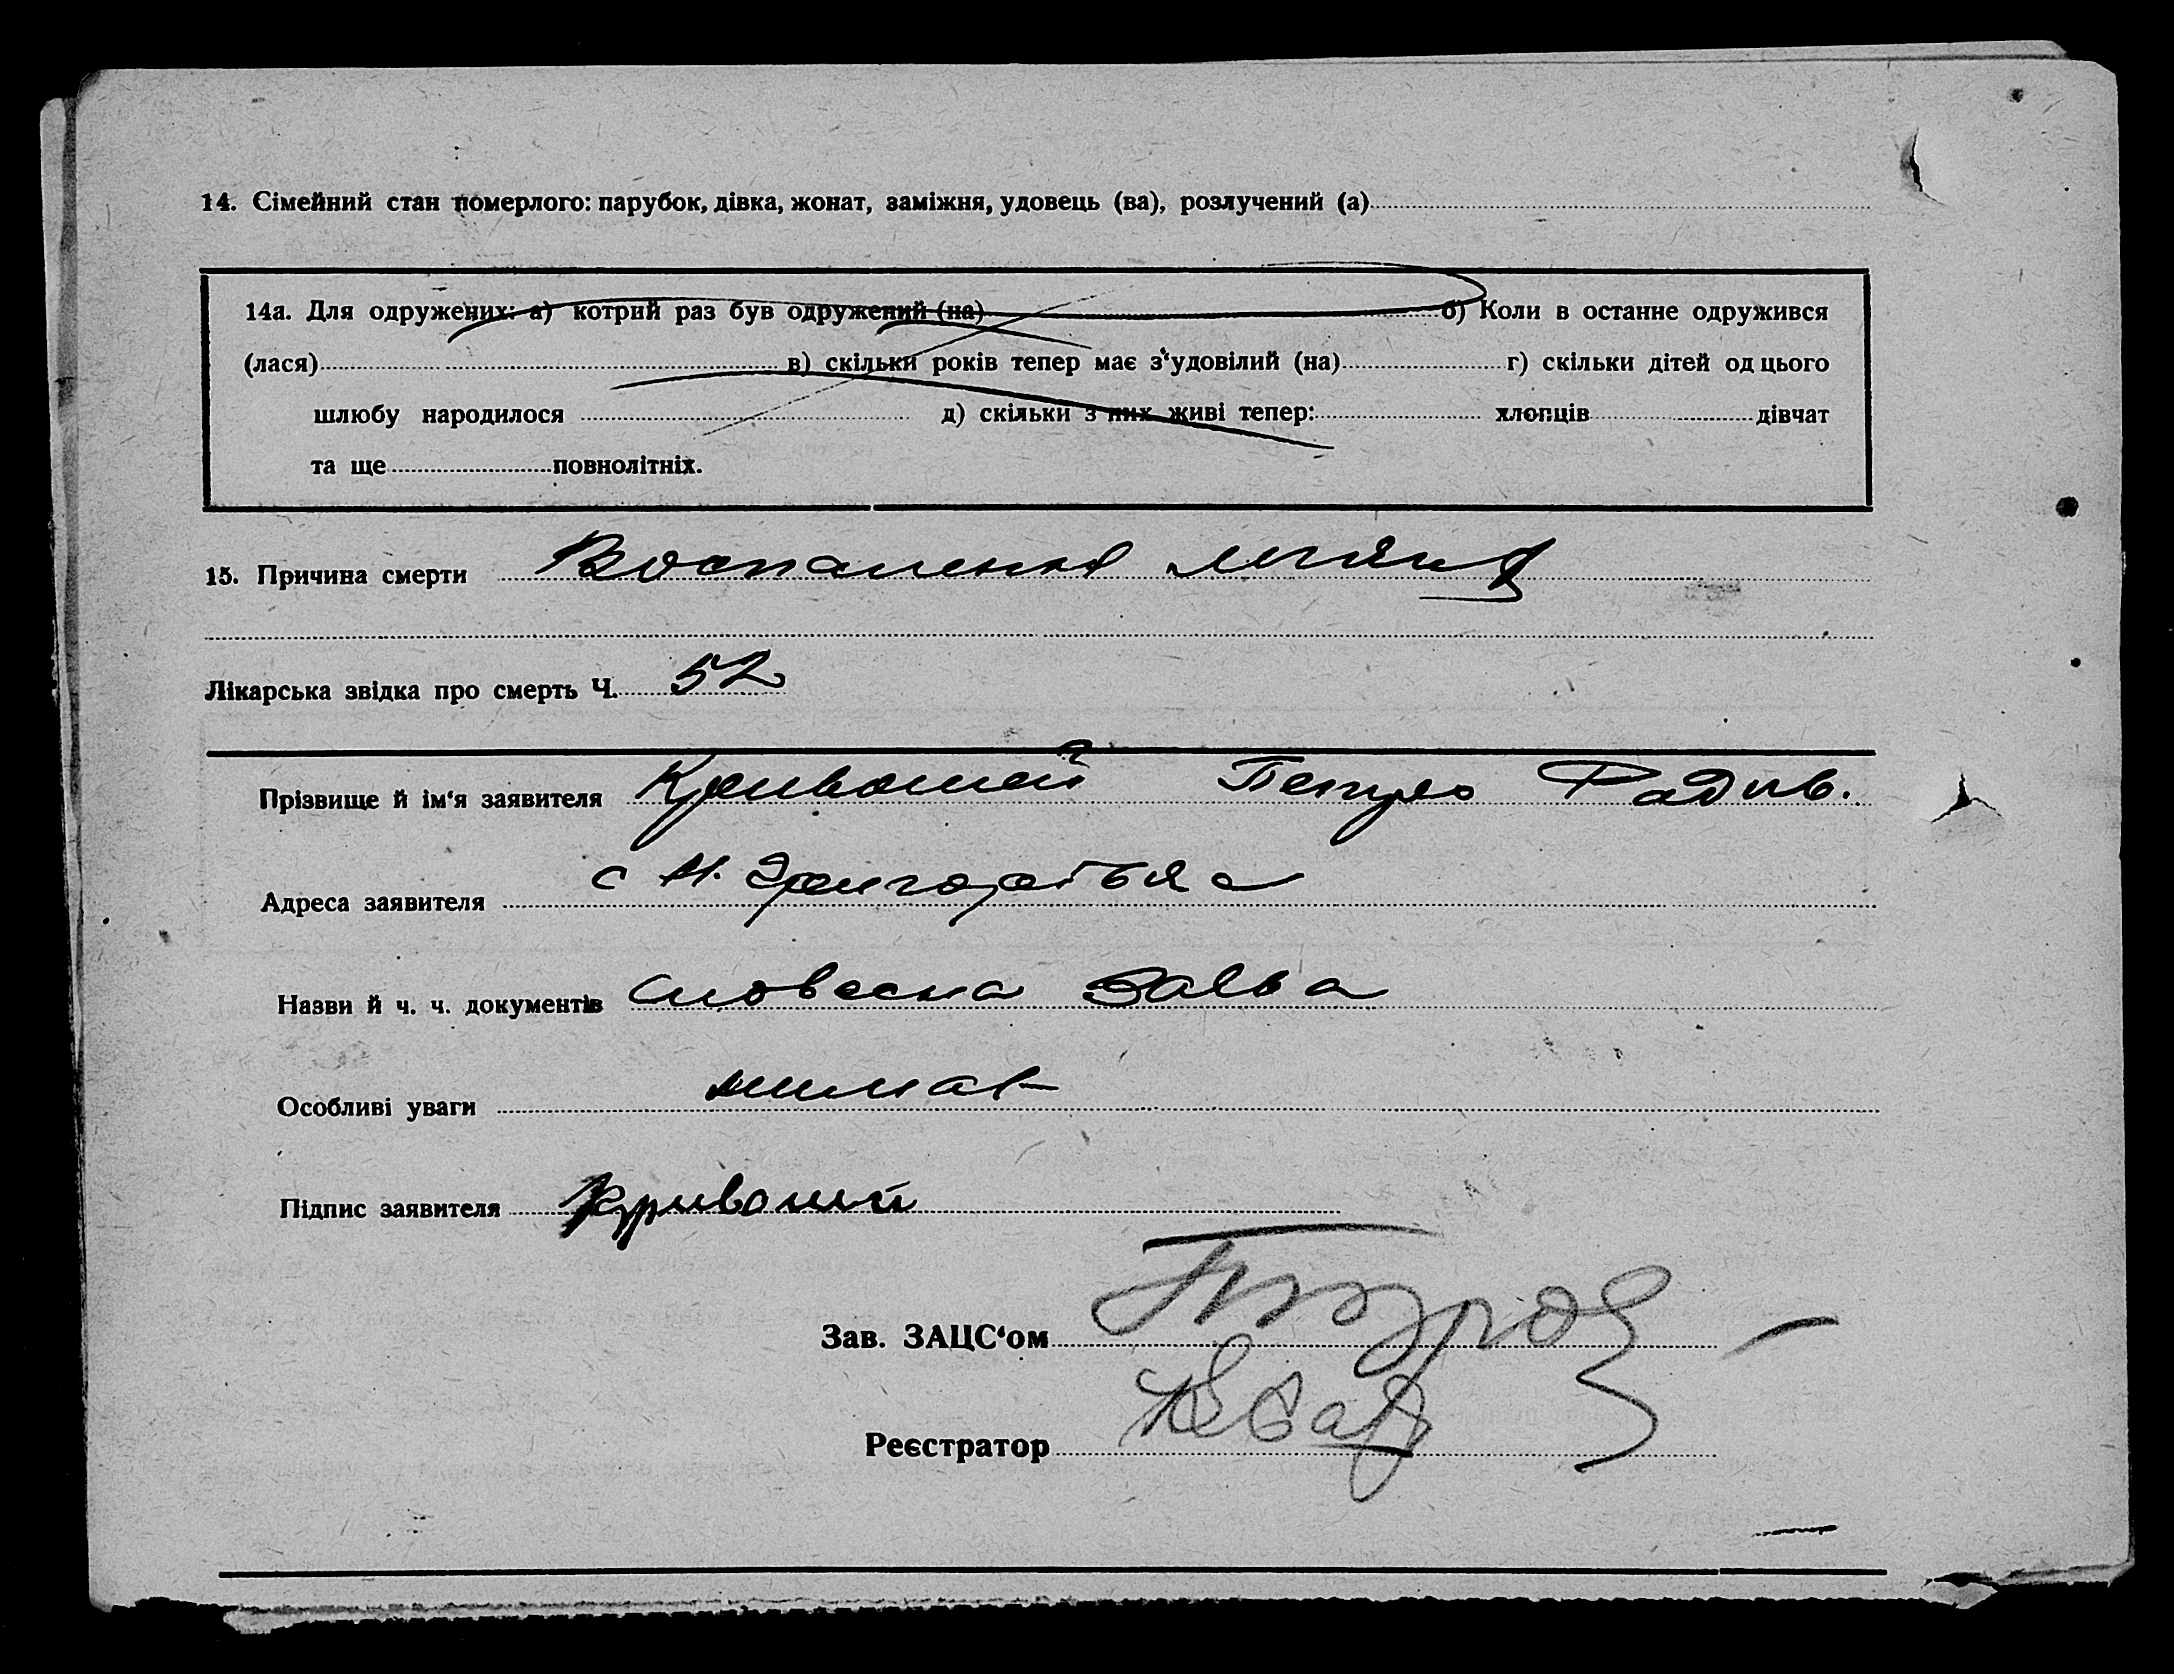 14. Сімейний стан померлого: парубок, дівка, жонат, заміжня, удовець (ва), розлучений (а)
14а. Для одружених: а) котрий раз був одружений (на) б) Коли в останне одружився
(лася) в) скільки років тепер має з'удовілий (на) г) скільки дітей од цього
шлюбу народилося д) скільки з них живі тепер: хлопців дівчат
та ще повнолітніх.
15. Причина смерти Воспаления легких
Лікарська звідка про смерть Ч. 52
Прізвище й ім'я заявителя Кривошей Петро Радив.
Адреса заявителя с Н.
Назви й ч. ч. документів Словесна заява
Особливі уваги нимає
Підпис заявителя Кривоший
Зав. ЗАЦС'ом
Реєстратор